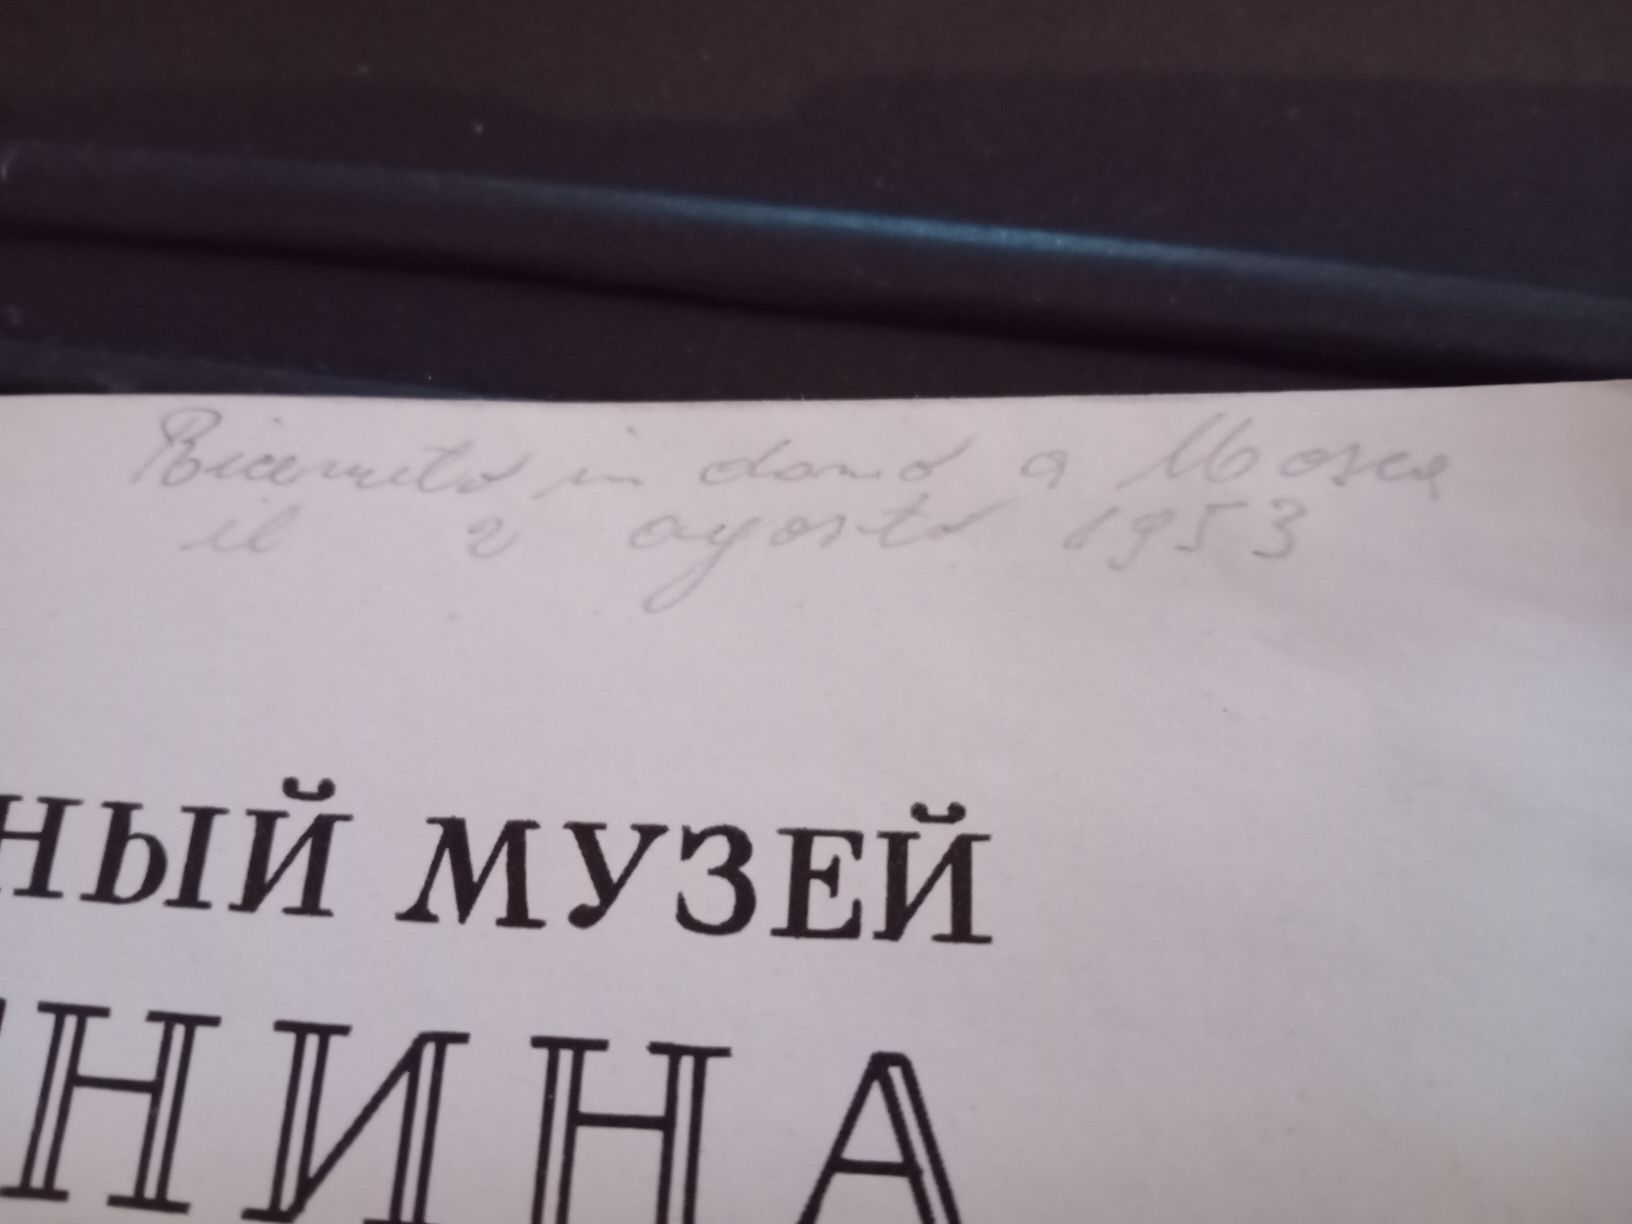 Ricevuto in dono a Mosca
il 2 agosto 1953
НЫЙ МУЗЕЙ
НИНА